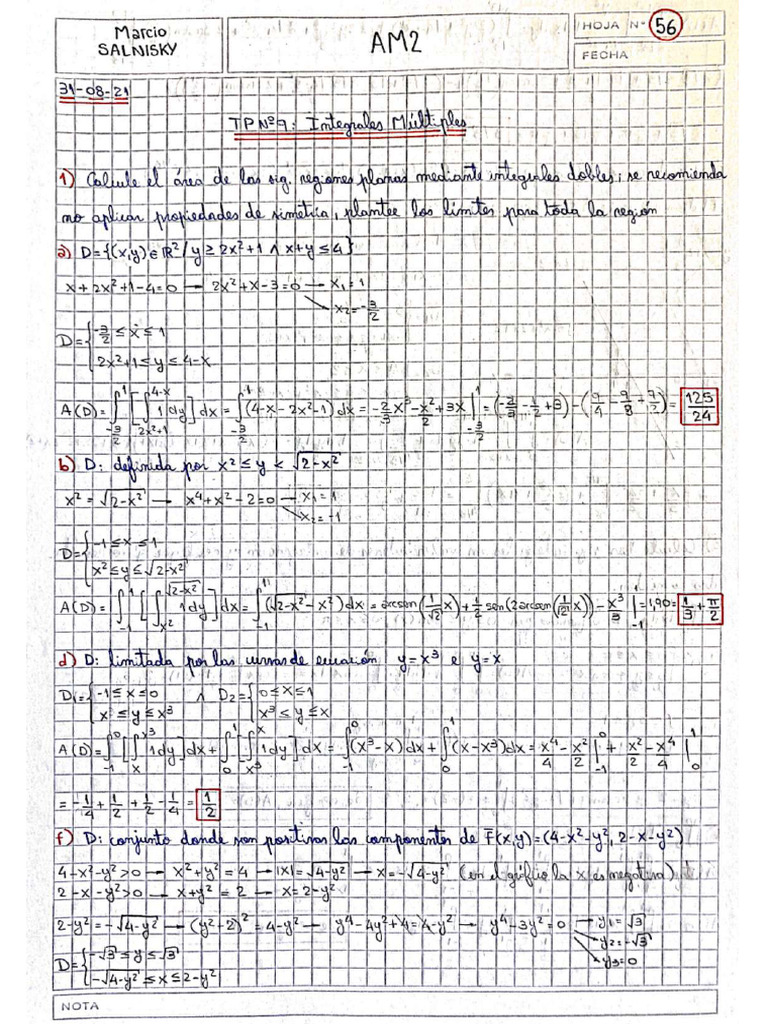 Marcio
SALNISKY
AM2
HOJA Nº 56
FECHA
31-08-21
TP Nº 7: Integrales Múltiples
1) Calcule el área de las sig. regiones planas mediante integrales dobles; se recomienda
no aplicar propiedades de simetría, plantee los límites para toda la región
a) D={(x,y)∈ℝ²/y≥2x²+1 ∧ x+y≤4}
x+2x²+1-4=0 → 2x²+x-3=0 → x₁=1
x₂=-3/2
D={-3/2≤x≤1
2x²+1≤y≤4-x
A(D)=∫_{-3/2}^{1}[∫_{2x²+1}^{4-x} 1dy]dx=∫_{-3/2}^{1}(4-x-2x²-1)dx=-2/3 x³-x²/2+3x|_{-3/2}^{1}=(-2/3-1/2+3)-(9/4-9/8-9/2)=125/24
b) D: definida por x²≤y<√(2-x²)
x²=√(2-x²) → x⁴+x²-2=0 → x₁=1
x₂=-1
D={-1≤x≤1
x²≤y≤√(2-x²)
A(D)=∫_{-1}^{1}[∫_{x²}^{√(2-x²)} 1dy]dx=∫_{-1}^{1}(√(2-x²)-x²)dx=arcsen(1/√2 x)+1/2 sen(2arcsen(1/√2 x))-x³/3|_{-1}^{1}=1,90=1/3+π/2
d) D: limitada por las curvas de ecuación y=x³ e y=x
D₁={-1≤x≤0 ∧ D₂={0≤x≤1
x≤y≤x³ x³≤y≤x
A(D)=∫_{-1}^{0}[∫_{x}^{x³} 1dy]dx+∫_{0}^{1}[∫_{x³}^{x} 1dy]dx=∫_{-1}^{0}(x³-x)dx+∫_{0}^{1}(x-x³)dx=x⁴/4-x²/2|_{-1}^{0}+x²/2-x⁴/4|_{0}^{1}
=-1/4+1/2+1/2-1/4=1/2
f) D: conjunto donde son positivas las componentes de F̄(x,y)=(4-x²-y²,2-x-y²)
4-x²-y²>0 → x²+y²=4 → |x|=√(4-y²) → x=-√(4-y²) (en el gráfico la x es negativa)
2-x-y²>0 → x+y²=2 → x=2-y²
2-y²=-√(4-y²) → (y²-2)²=4-y² → y⁴-4y²+4=4-y² → y⁴-3y²=0 → y₁=√3
y₂=-√3
y₃=0
D={-√3≤y≤√3
-√(4-y²)≤x≤2-y²
NOTA